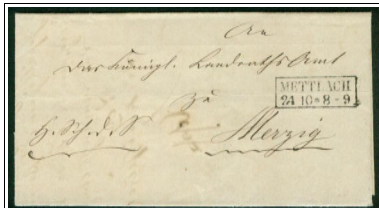 An
das Königl. Landraths Amt
METTLACH
24 10 * 8 - 9
zu
H. Sch. d. S
Merzig